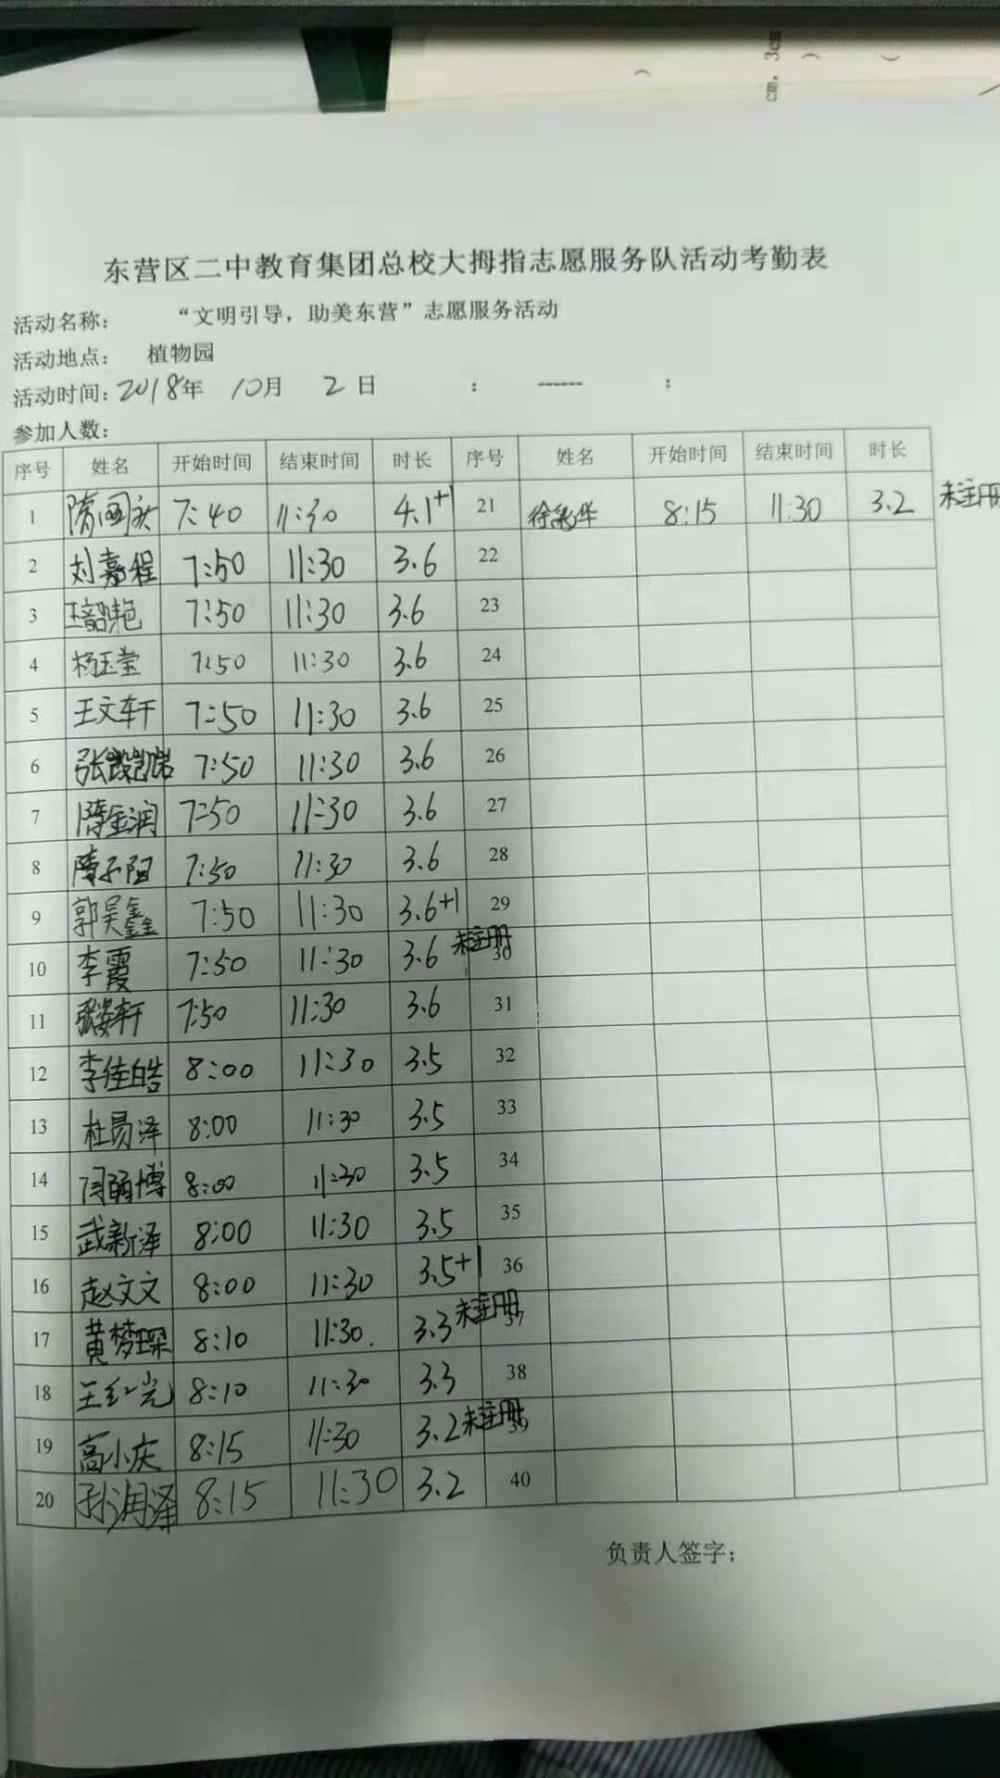 cm, 3cm
东营区二中教育集团总校大拇指志愿服务队活动考勤表
活动名称： “文明引导，助美东营”志愿服务活动
活动地点： 植物园
活动时间：2018年 10月 2日 ： ------ ：
参加人数：
序号 姓名 开始时间 结束时间 时长 序号 姓名 开始时间 结束时间 时长
1 7:40 11:30 4.1+1 21 8:15 11:30 3.2 未注册
2 刘嘉程 7:50 11:30 3.6 22
3 王韶艳 7:50 11:30 3.6 23
4 杨玉莹 7:50 11:30 3.6 24
5 王文轩 7:50 11:30 3.6 25
6 7:50 11:30 3.6 26
7 隋金润 7:50 11:30 3.6 27
8 隋子阳 7:50 11:30 3.6 28
9 郭昊鑫 7:50 11:30 3.6+1 29
10 李霞 7:50 11:30 3.6 未注册 30
11 7:50 11:30 3.6 31
12 李佳皓 8:00 11:30 3.5 32
13 杜易泽 8:00 11:30 3.5 33
14 8:00 11:30 3.5 34
15 武新泽 8:00 11:30 3.5 35
16 赵文文 8:00 11:30 3.5+1 36
17 黄梦琛 8:10 11:30. 3.3 未注册 37
18 王红光 8:10 11:30 3.3 38
19 高小庆 8:15 11:30 3.2 未注册 39
20 孙润泽 8:15 11:30 3.2 40
负责人签字：